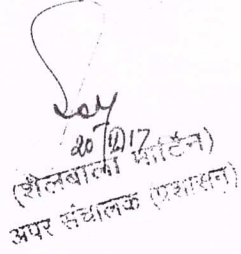 20/12/17
(शैलबाला मार्टिन)
अपर संचालक (प्रशासन)